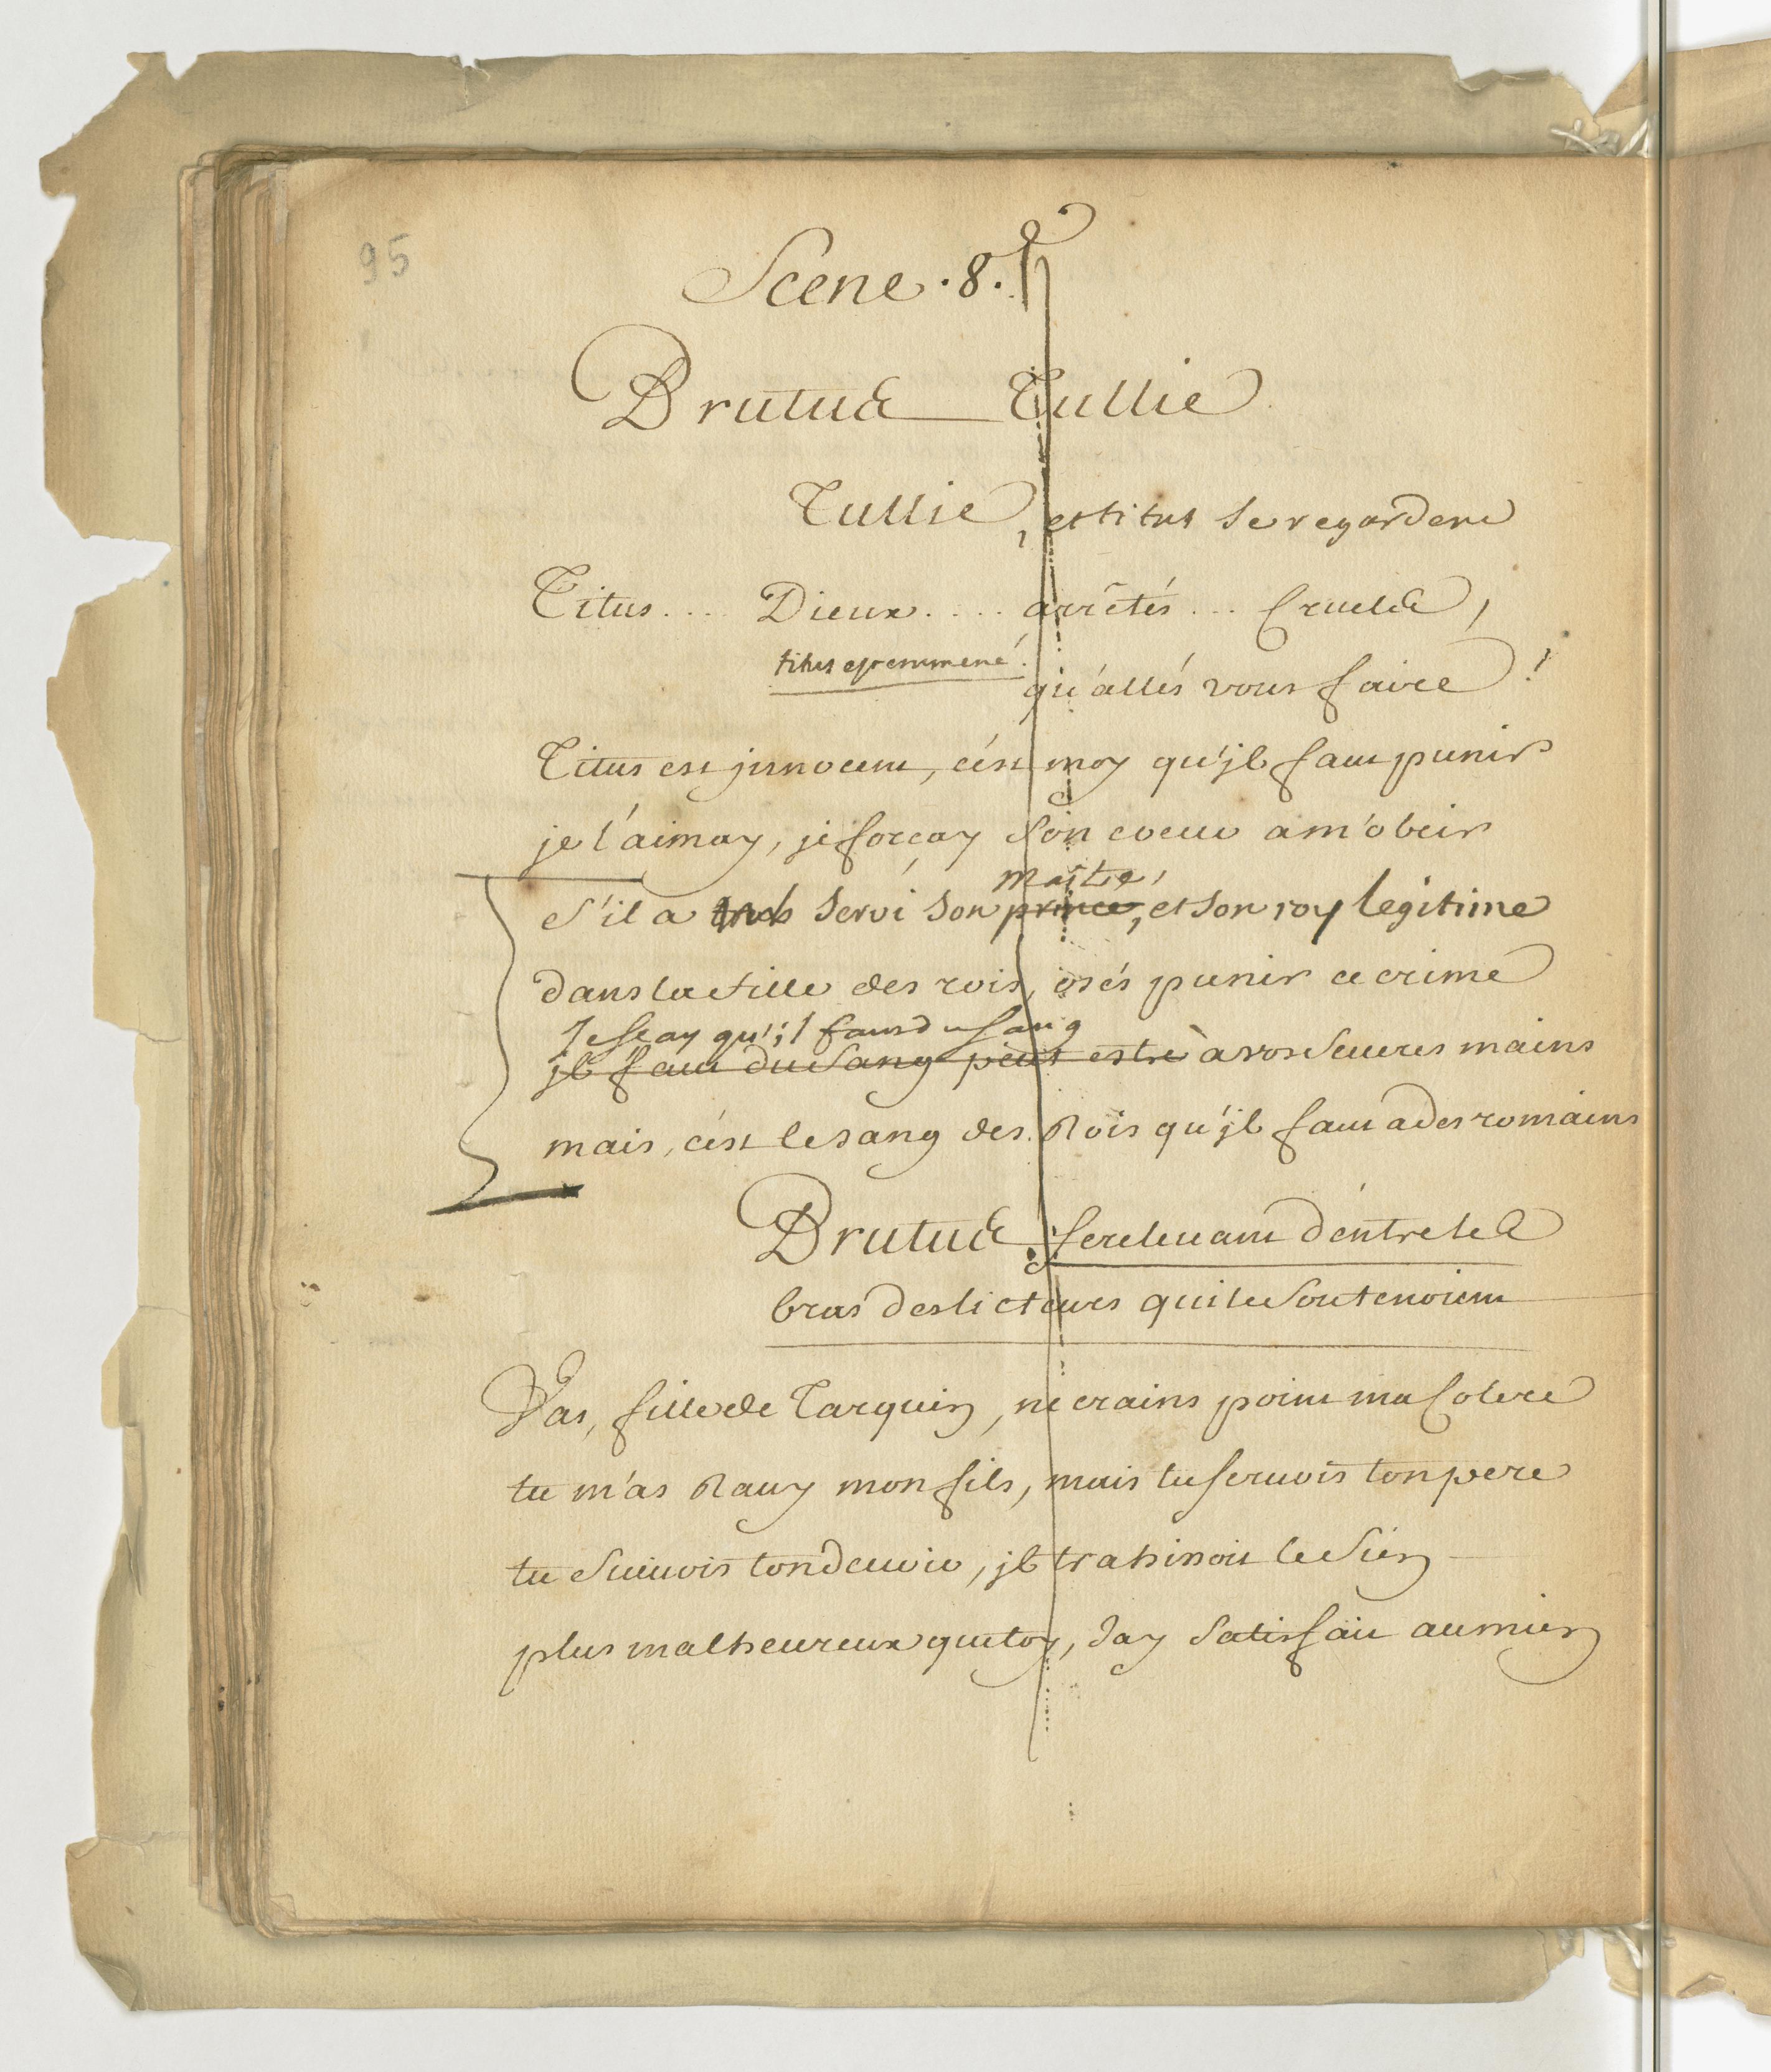 95
Scene .8.
Brutus Tullie
Tullie, et titus se regardent
Titus.... Dieux..... arrêtés... Cruels,
titus est emmené.
qu'allés vous faire!
Titus est jnnocent, c'est moy qu'jl faut punir
je l'aimay, je forcay son coeur a m'obeir
s'il a servi son prince, et son roy legitime
maitre,
dans la fille des rois, osés punir ce crime
Je scay qu'il faut du sang
jl faut du sang peut estre à vos seueres mains
mais, c'est le sang des Rois qu'jl faut a des romains
Brutus. se releuant d'entre les
bras des licteurs qui le soutenoient
Vas, fille de Tarquin, ne crains point ma Colere
tu m'as Rauy mon fils, mais tu seruois ton pere
tu suiuois ton deuoir, jl trahissoit le sien
plus malheureux que toy, Jay satisfait au mien